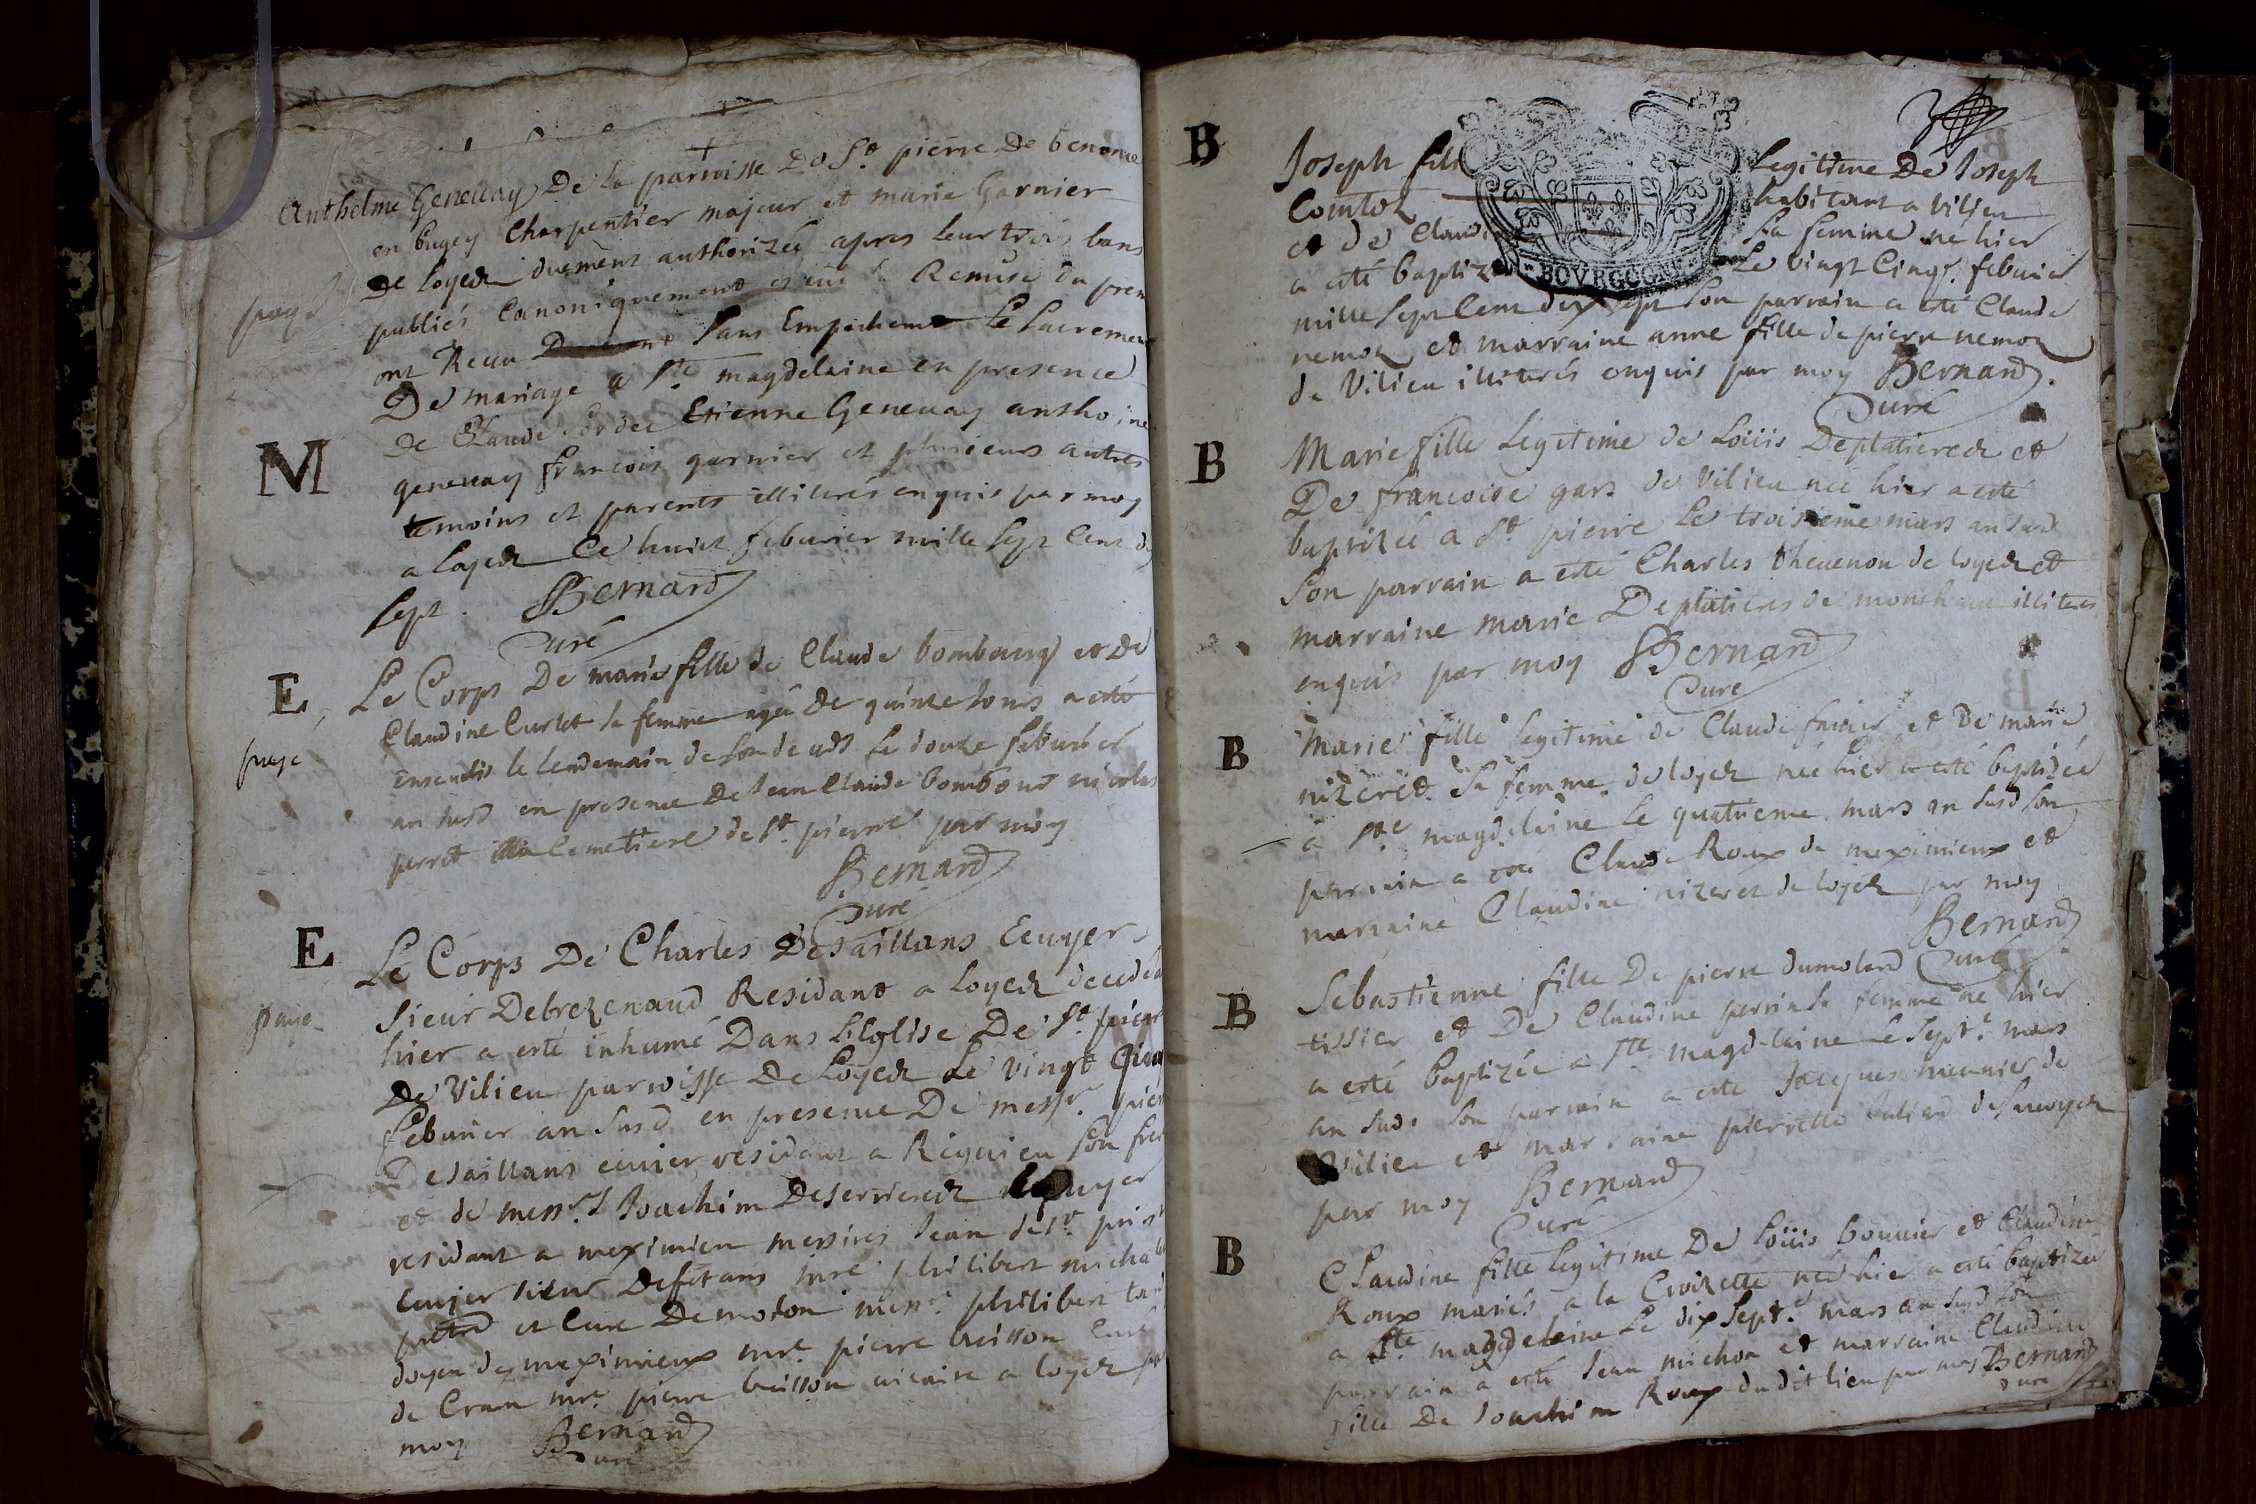 Anthelme Geneuay De la parroisse De St. pierre De
en bugey Charpentier majeur et marie Garnier
De loyer duement authorizée apres leur trois bans
publiés Canoniquement et la Remise du
payé
ont Receu sans Empechement le sacrement
De mariage a Ste magdelaine en presence
de Claude Etienne Geneuay anthoine
M
geneuay francois garnier et plusieurs autres
temoins et parents illiterés enquis par moy
a loyer Ce huict feburier mille sept Cent
sept. Bernard
Curé
E
Le Corps De marie fille de Claude bombourg et De
Claudine Curlet sa femme agée De quinze Jours a esté
payé
enseueli le lendemain de son deceds Le douze feburier
an susd en presence De Jean Claude bombour nicolas
perret cemetiere de St. pierre par moy
Bernard
Curé
E
Le Corps De Charles DeSaillans Ecuyer
Sieur Debrezenaud Residant a loyer decedé
paye
hier a esté inhumé Dans L'Eglise De St. pierre
De Vilieu parroisse De Loyer Le Vingt
feburier an susd en presence De messr.
Desaillans ecuier residant a Rignieu son frere
et de messrs Joachim Deserrieres
residant a meximieu messires Jean de St.
Ecuyer sieur Defetans mre philibert
pretre et Cure De molon messr. philibert
doyen de meximieux mre pierre buisson Curé
de Cran mre. pierre buisson vicaire a loyer par
moy Bernard
Curé
B
Joseph fils legitime De Joseph
habitant a Vilieu
et de sa femme né hier
a esté baptizé Le Vingt Cinq. feburier
mille sept cent dix sept son parrain a esté Claude
nemoz et marraine anne fille de pierre nemoz
de Vilieu illiterés enquis par moy Bernard.
Curé
BOVRGOGNE
B
Marie fille legitime de Loüis Deplatieres et
De francoise gars de Vilieu née hier a esté
baptizée a St. pierre le troisieme mars an susd
son parrain a esté Charles theuenon de loyer et
marraine marie Deplatieres de illiteres
enquis par moy Bernard
Curé
B
Marie fille legitime de Claude et De marie
nizeret sa femme de loyer née hier a esté baptizée
a Ste magdelaine le quatrieme mars an susd son
parrain a esté Claude Roux de meximieux et
marraine Claudine nizeret de loyer par moy
Bernard
Curé
B
Sebastienne fille De pierre dumolard
tissier et De Claudine perrin sa femme né hier
a esté baptizée a Ste. magdelaine le sept.e mars
an susd son parrain a esté Jacques meunier de
Vilieu et marraine pierrette
par moy Bernard
Curé
B
Claudine fille legitime De Loüis bouuier et Claudine
Roux mariés a la Croizette née hier a esté baptizée
a Ste. magdeleine Le dix sept.e mars an susd son
parrain a esté Jean michon et marraine Claudine
fille De Joachim Roux du dit lieu par moy Bernard
Curé